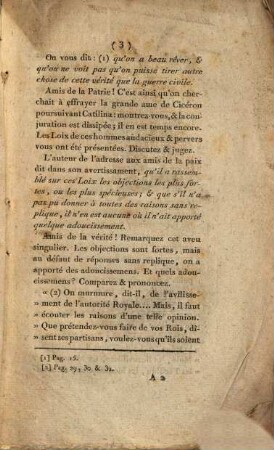 ( 3 )
On vous dit : (1) qu'on a beau rêver, &
qu'on ne voit pas qu'on puisse tirer autre
chose de cette vérité que la guerre civile.
Amis de la Patrie ! C'est ainsi qu'on cher-
chait à effrayer la grande ame de Cicéron
poursuivant Catilina : montrez-vous, & la con-
juration est dissipée ; il en est temps encore.
Les Loix de ces hommes audacieux & pervers
vous ont été présentées. Discutez & jugez.
L'auteur de l'adresse aux amis de la paix
dit dans son avertissement, qu'il a rassem-
blé sur ces Loix les objections les plus for-
tes, ou les plus spécieuses ; & que s'il n'a
pas pu donner à toutes des raisons sans re-
plique, il n'en est aucune où il n'ait apporté
quelque adoucissement.
Amis de la vérité ! Remarquez cet aveu
singulier. Les objections sont fortes, mais
au défaut de réponses sans replique, on a
apporté des adoucissemens. Et quels adou-
cissemens ? Comparez & prononcez.
« (2) On murmure, dit-il, de l'avilisse-
» ment de l'autorité Royale.... Mais, il faut
» écouter les raisons d'une telle opinion.
« Que prétendez-vous faire de vos Rois, di-
sent ses partisans, voulez-vous qu'ils soient
[1] Pag. 15.
[2] Pag. 29, 30 & 31.
A 2